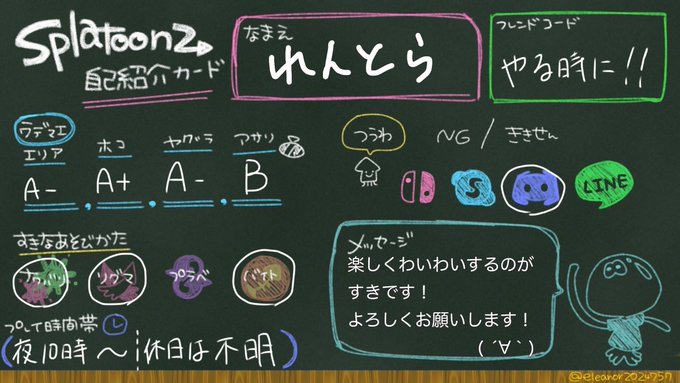 Splatoon2
自己紹介カード
なまえ
れんとら
フレンドコード
やる時に!!
ウデマエ
エリア
ホコ
ヤグラ
アサリ
A-, A+, A-, B
つうわ
NG / ききせん
LINE
すきなあそびかた
ナワバリ
リグマ
プラベ
バイト
プレイ時間帯
(夜10時〜 休日は不明)
メッセージ
楽しくわいわいするのが
すきです!
よろしくお願いします!
( ´∀` )
@eleanor2024757